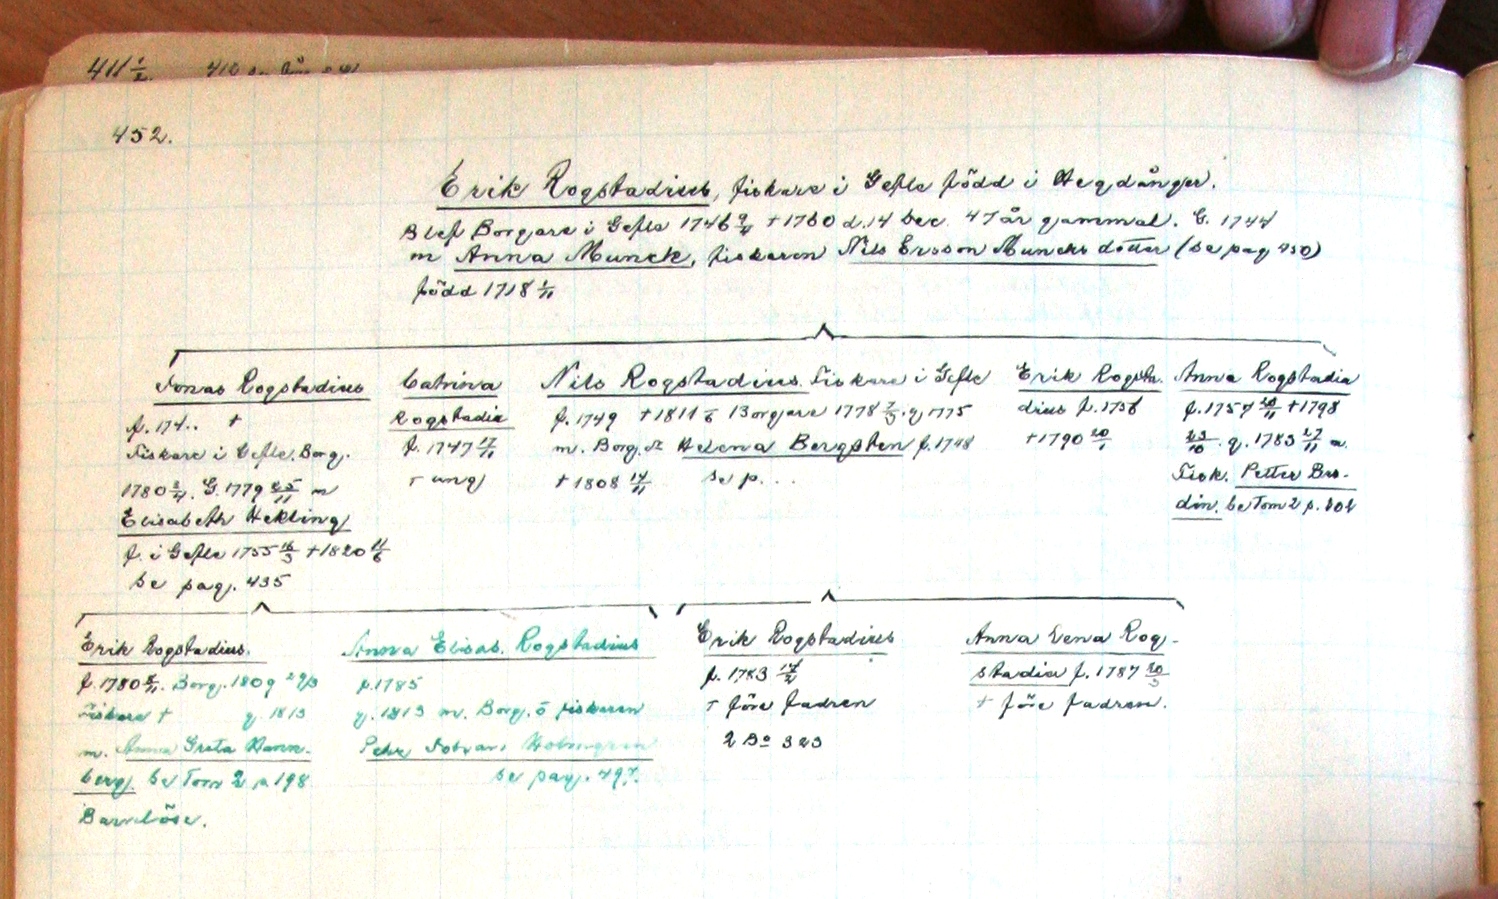 411 1/2.
452.
Erik Rogstadius, fiskare i Gefle född i Hegdånger.
Blef Borgare i Gefle 1746 9/4 +1760 d.14 Dec. 47 år gammal. G. 1744
m Anna Munck, fiskaren Nils Ersson Muncks dotter (se pag 450)
född 1718 1/11
Jonas Rogstadius
f. 174.. +
Fiskare i Gefle. Borg.
1780 3/4. G. 1779 25/11 m
Elisabeth Hekling
f. i Gefle 1755 16/3 +1820 11/6
se pag. 435
Catrina
Rogstadia
f. 1747 17/11
+ ung
Nils Rogstadius. Fiskare i Gefle
f. 1749 +1811 Borgare 1778 g 1775
m. Borg. Helena Bergsten f. 1748
+ 1808 14/11 se p. . .
Erik Rogsta-
dius f. 1756
+1790 20/1
Anna Rogstadia
f. 1757 +1798
23/10. g. 1783 27/11 m.
Fisk. Petter Bro-
din. se Tom 2 p. 202
Erik Rogstadius.
f. 1780 8/11. Borg. 1809 29/3
Fiskare + g. 1813
m. Anna Greta Hamn-
berg. se Tom 2 p 198
Barnlöse.
Anna Elisab. Rogstadius
f. 1785
g. 1813 m. Borg. o fiskaren
Pehr Holmgren
se pag. 497.
Erik Rogstadius
f. 1783 14/2
+ före fadren
2 Bo 323
Anna Lena Rog-
stadia f. 1787 20/3
+ före fadren.